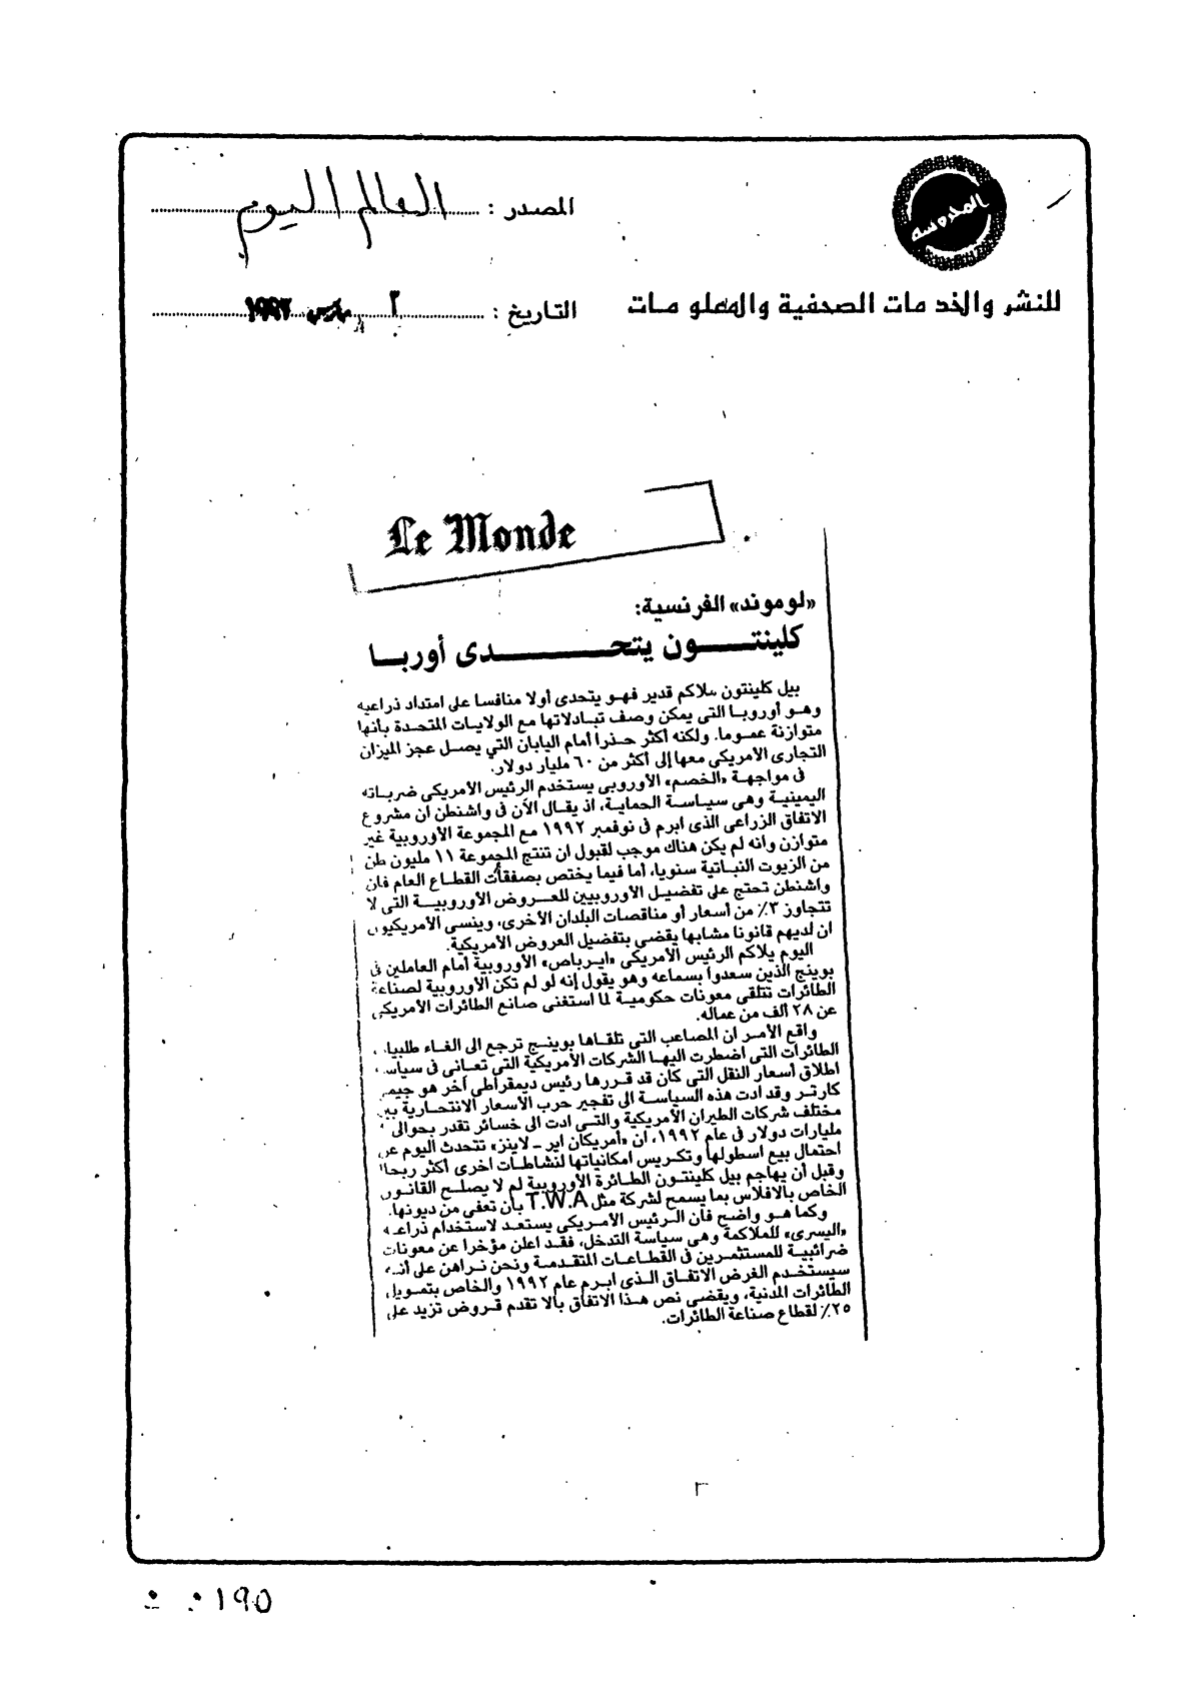 المحروسة
المصدر : العالم اليوم
للنشر والخدمات الصحفية والمعلومات
التاريخ : ٢ مارس ١٩٩٣
Le Monde
«لوموند» الفرنسية:
كلينتون يتحدى أوربا
بيل كلينتون ملاكم قدير فهو يتحدى أولا منافسا على امتداد ذراعيه
وهو أوروبا التى يمكن وصف تبادلاتها مع الولايات المتحدة بأنها
متوازنة عموما. ولكنه أكثر حذرا أمام اليابان التي يصل عجز الميزان
التجارى الأمريكي معها إلى أكثر من ٦٠ مليار دولار.
فى مواجهة «الخصم» الأوروبى يستخدم الرئيس الأمريكى ضرباته
اليمينية وهى سياسة الحماية، اذ يقال الآن فى واشنطن ان مشروع
الاتفاق الزراعى الذى ابرم فى نوفمبر ١٩٩٢ مع المجموعة الأوروبية غير
متوازن وانه لم يكن هناك موجب لقبول ان تنتج المجموعة ١١ مليون طن
من الزيوت النباتية سنويا، أما فيما يختص بصفقات القطاع العام فان
واشنطن تحتج على تفضيل الأوروبيين للعروض الأوروبية التى لا
تتجاوز ٣٪ من أسعار أو مناقصات البلدان الأخرى، وينسى الأمريكيون
ان لديهم قانونا مشابها يقضى بتفضيل العروض الأمريكية.
اليوم يلاكم الرئيس الأمريكى «ايرباص» الأوروبية أمام العاملين فى
بوينج الذين سعدوا بسماعه وهو يقول إنه لو لم تكن الأوروبية لصناعة
الطائرات تتلقى معونات حكومية لما استغنى صانع الطائرات الأمريكى
عن ٢٨ ألف من عماله.
واقع الأمر ان المصاعب التى تلقاها بوينج ترجع الى الغاء طلبيات
الطائرات التى اضطرت اليها الشركات الأمريكية التى تعانى فى سياسة
اطلاق أسعار النقل التى كان قد قررها رئيس ديمقراطى آخر هو جيمى
كارتر وقد ادت هذه السياسة الى تفجير حرب الأسعار الانتحارية بين
مختلف شركات الطيران الأمريكية والتى ادت الى خسائر تقدر بحوالى
مليارات دولار فى عام ١٩٩٢، ان «أمريكان اير ـ لاينز» تتحدث اليوم عن
احتمال بيع اسطولها وتكريس امكانياتها لنشاطات اخرى أكثر ربحا
وقبل أن يهاجم بيل كلينتون الطائرة الأوروبية لم لا يصلح القانون
الخاص بالافلاس بما يسمح لشركة مثل T.W.A بأن تعفى من ديونها.
وكما هو واضح فان الرئيس الأمريكي يستعد لاستخدام ذراعه
«اليسرى» للملاكمة وهى سياسة التدخل، فقد اعلن مؤخرا عن معونات
ضرائبية للمستثمرين فى القطاعات المتقدمة ونحن نراهن على أنه
سيستخدم الغرض الاتفاق الذى ابرم عام ١٩٩٢ والخاص بتمويل
الطائرات المدنية، ويقضى نص هذا الاتفاق بالا تقدم قروض تزيد على
٢٥٪ لقطاع صناعة الطائرات.
٠١٩٥